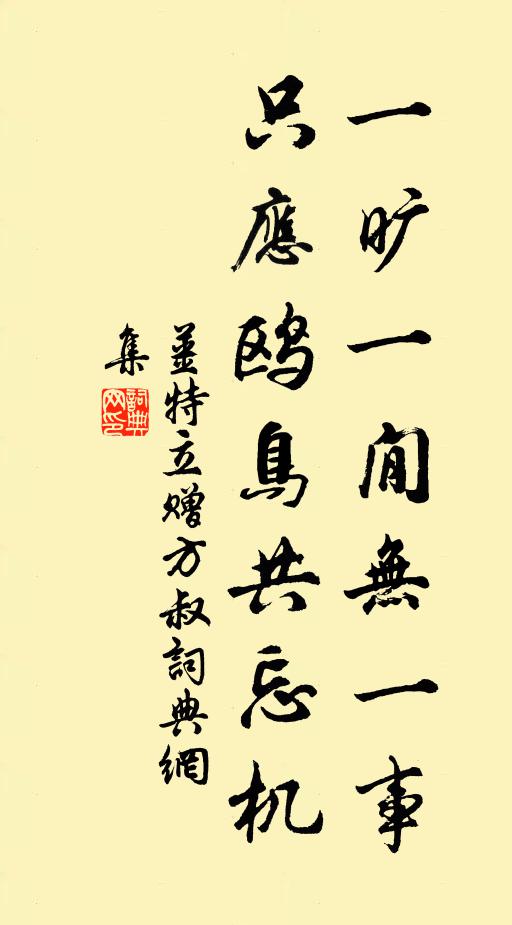 一旷一閒無一事
只應鸥鳥共忘机
姜特立赠方叔詞典網
集
詞典网印